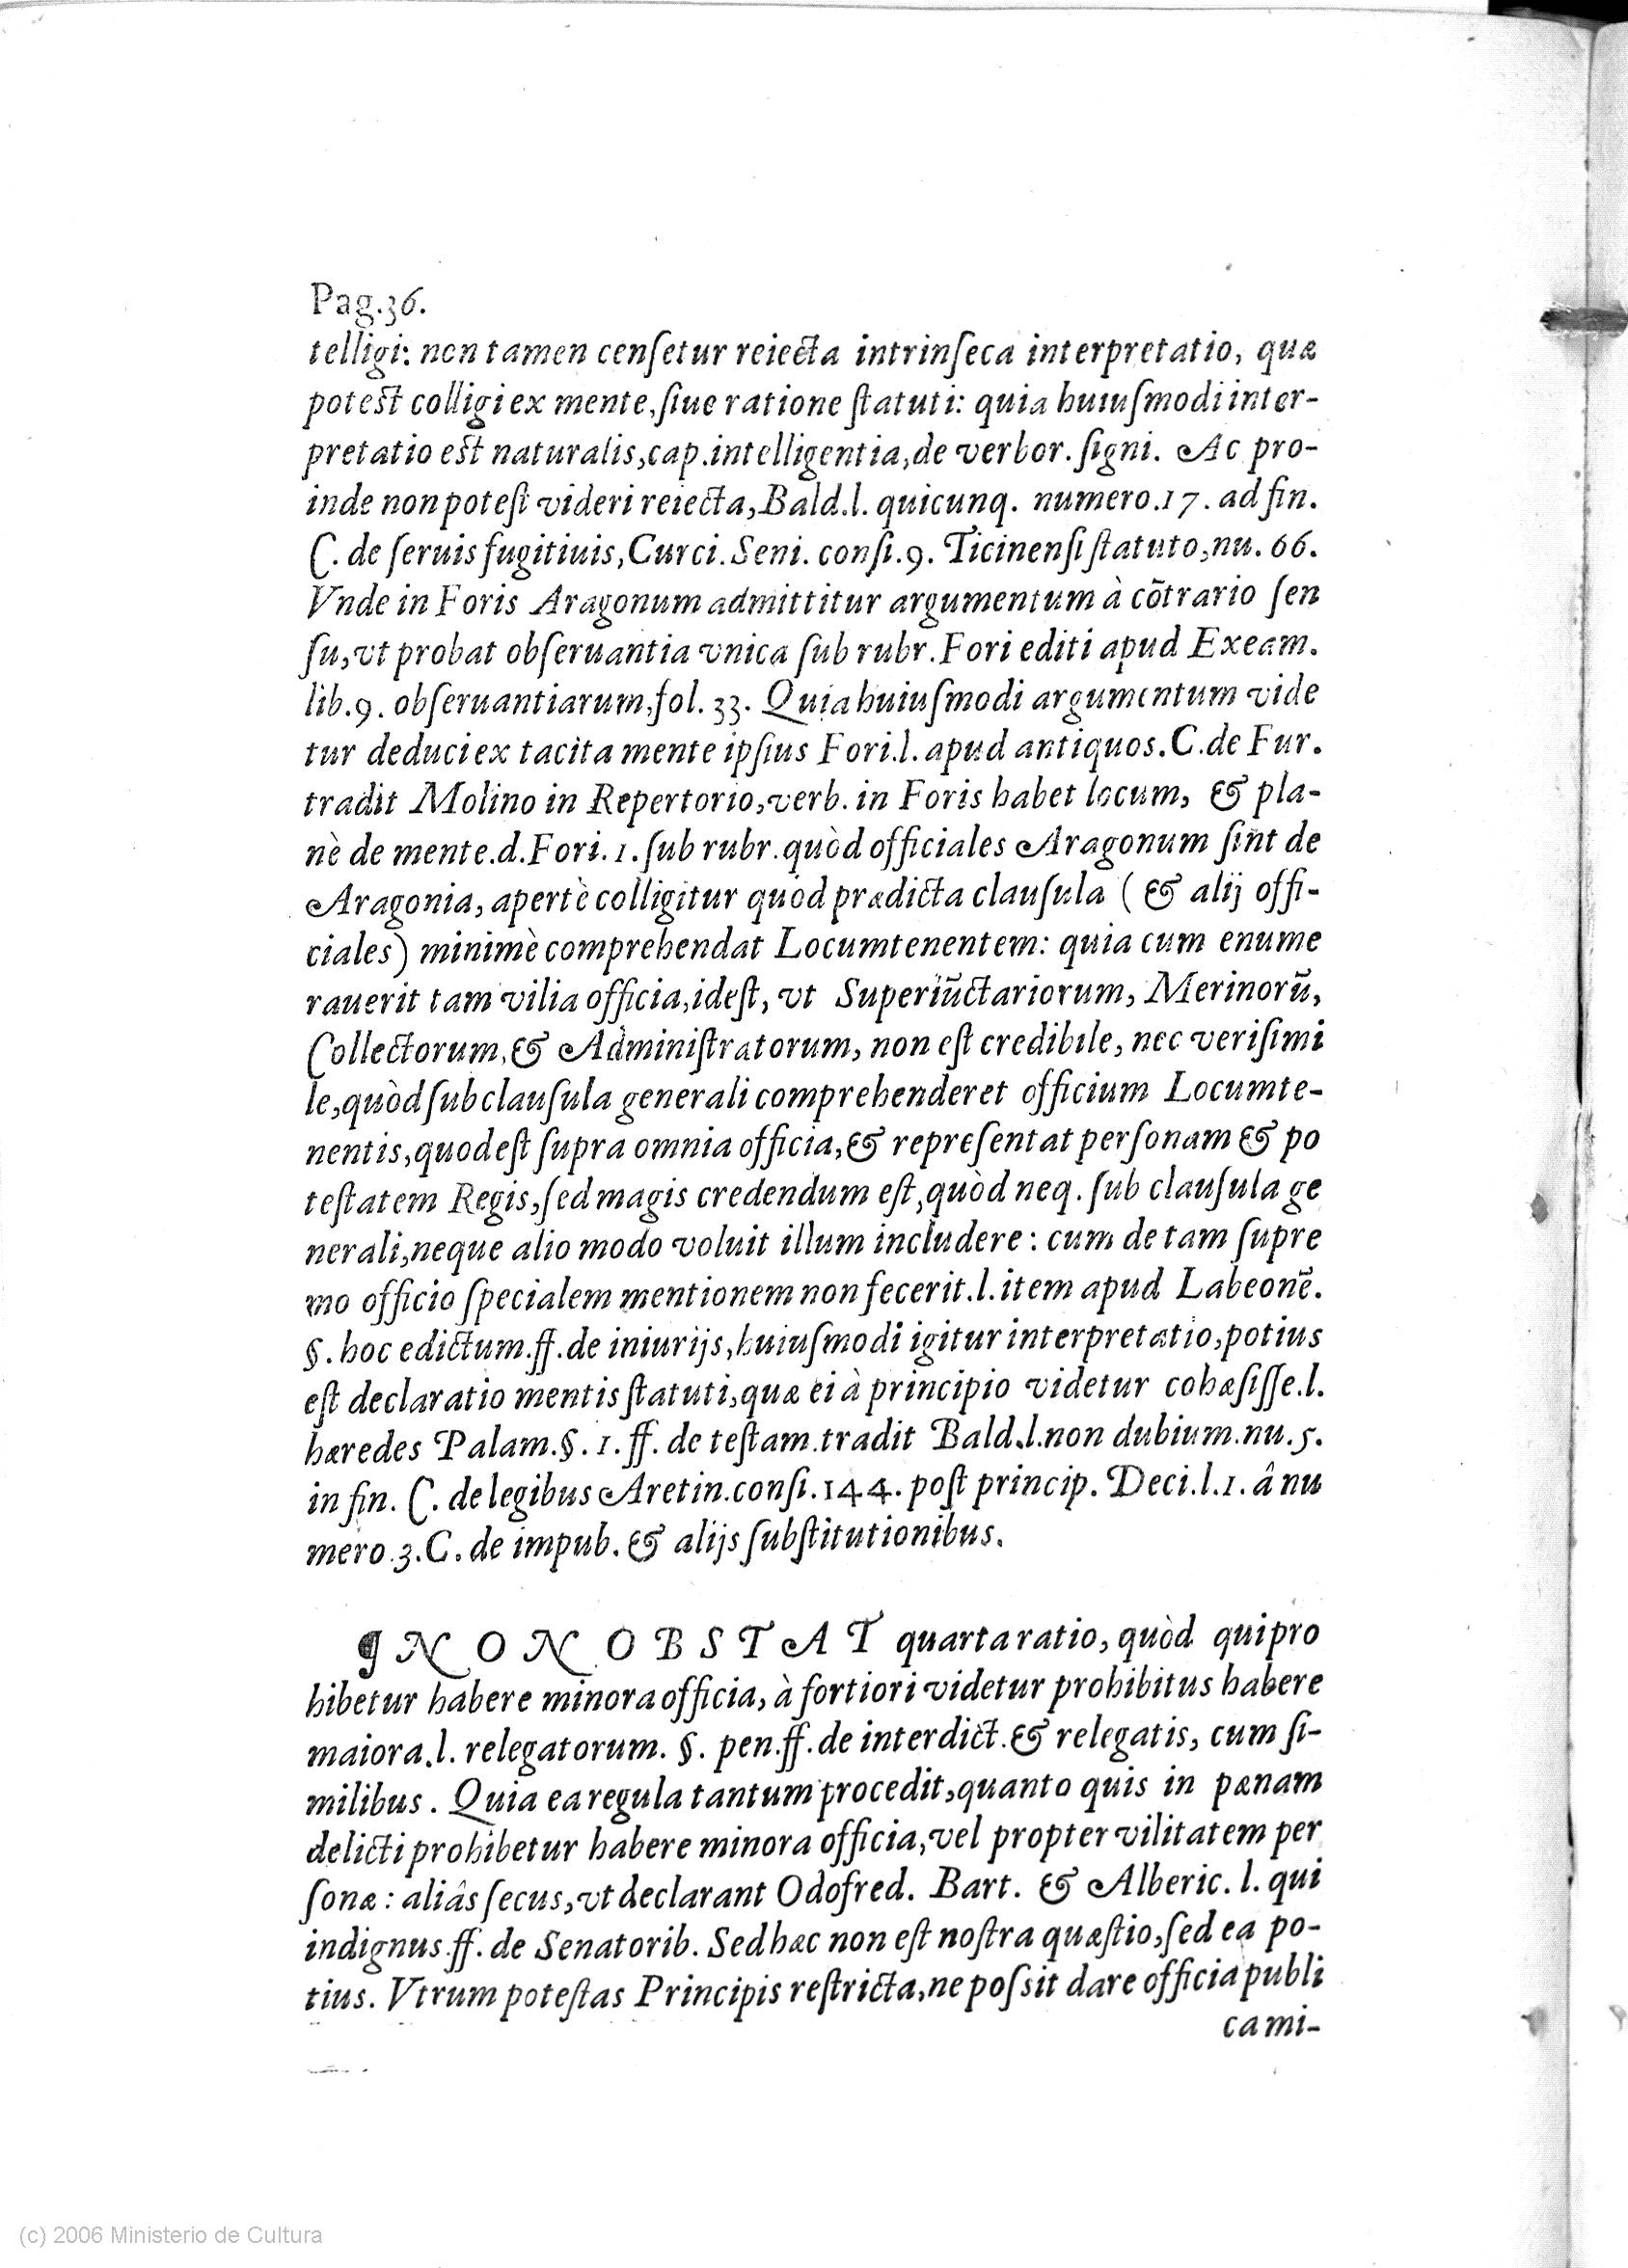 Pag.36.
telligi: non tamen censetur reiecta intrinseca interpretatio, quæ
potest colligi ex mente, siue ratione statuti: quia huiusmodi inter-
pretatio est naturalis, cap. intelligentia, de verbor. signi. Ac pro-
inde non potest videri reiecta, Bald. l. quicunq. numero. 17. ad fin.
C. de seruis fugitiuis, Curci. Seni. consi. 9. Ticinensi statuto, nu. 66.
Vnde in Foris Aragonum admittitur argumentum à cõtrario sen
su, vt probat obseruantia vnica sub rubr. Fori editi apud Exeam.
lib. 9. obseruantiarum, fol. 33. Quia huiusmodi argumentum vide
tur deduci ex tacita mente ipsius Fori. l. apud antiquos. C. de Fur.
tradit Molino in Repertorio, verb. in Foris habet locum, & pla-
nè de mente. d. Fori. 1. sub rubr. quòd officiales Aragonum sint de
Aragonia, apertè colligitur quòd prædicta clausula ( & alij offi-
ciales) minimè comprehendat Locumtenentem: quia cum enume
rauerit tam vilia officia, idest, vt Superiũctariorum, Merinorũ,
Collectorum, & Administratorum, non est credibile, nec verisimi
le, quòd sub clausula generali comprehenderet officium Locumte-
nentis, quod est supra omnia officia, & representat personam & po
testatem Regis, sed magis credendum est, quòd neq. sub clausula ge
nerali, neque alio modo voluit illum includere : cum de tam supre
mo officio specialem mentionem non fecerit. l. item apud Labeonẽ.
§. hoc edictum. ff. de iniurijs, huiusmodi igitur interpretatio, potius
est declaratio mentis statuti, quæ ei à principio videtur cohæsisse. l.
hæredes Palam. §. 1. ff. de testam. tradit Bald. l. non dubium. nu. 5.
in fin. C. de legibus Aretin. consi. 144. post princip. Deci. l. 1. â nu
mero. 3. C. de impub. & alijs substitutionibus.
¶ N O N O B S T A T quarta ratio, quòd qui pro
hibetur habere minora officia, à fortiori videtur prohibitus habere
maiora. l. relegatorum. §. pen. ff. de interdict. & relegatis, cum si-
milibus. Quia ea regula tantum procedit, quanto quis in pœnam
delicti prohibetur habere minora officia, vel propter vilitatem per
sonæ : aliâs secus, vt declarant Odofred. Bart. & Alberic. l. qui
indignus. ff. de Senatorib. Sed hæc non est nostra quæstio, sed ea po-
tius. Vtrum potestas Principis restricta, ne possit dare officia publi
ca mi-
(c) 2006 Ministerio de Cultura